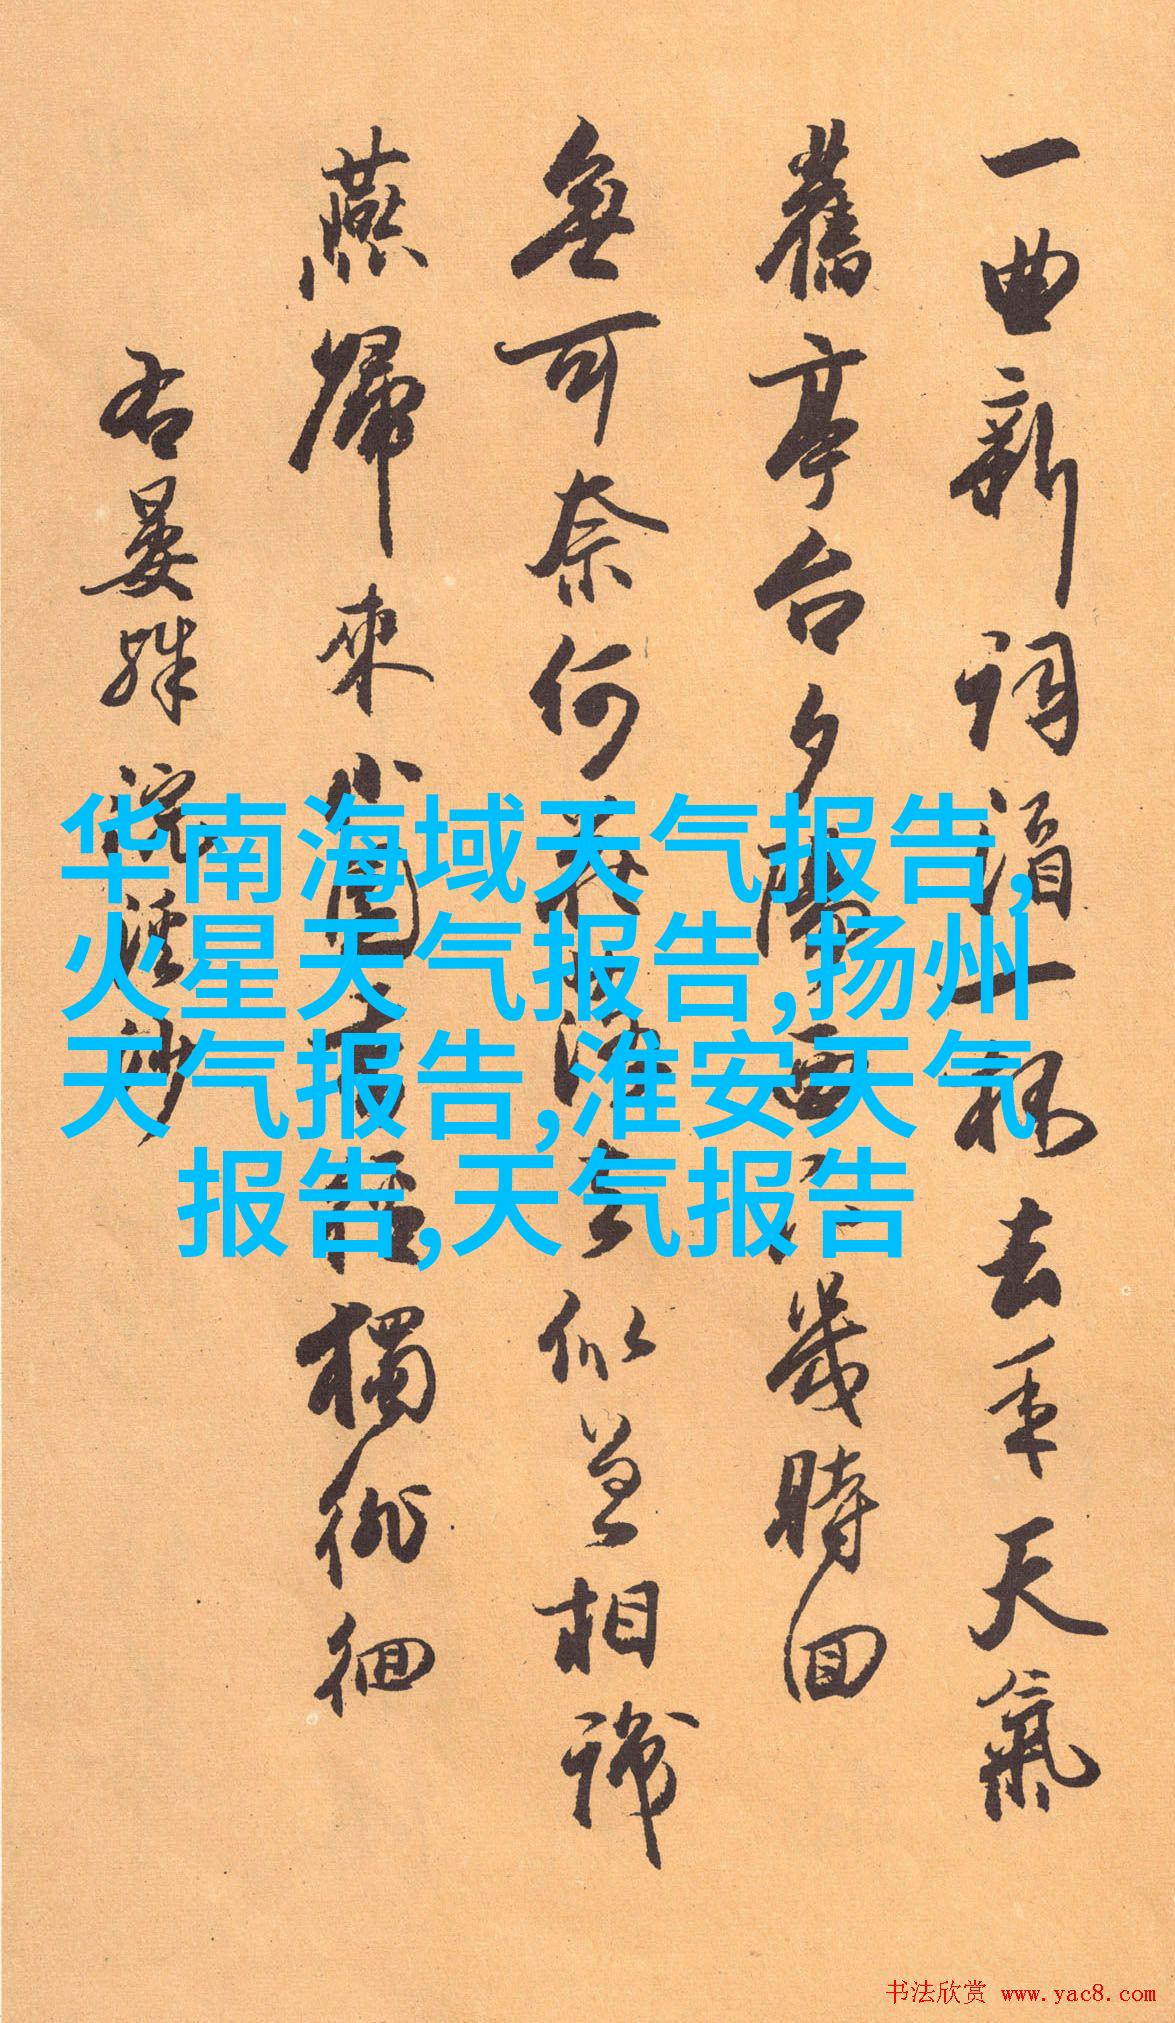 一曲新詞酒一杯去年天氣
舊亭台夕陽西下幾時回
無可奈何花落去似曾相識
燕歸來小園香徑獨徘徊
右晏殊浣溪沙
华南海域天气报告,
火星天气报告,扬州
天气报告,淮安天气
报告,天气报告
书法欣赏 www.yac8.com